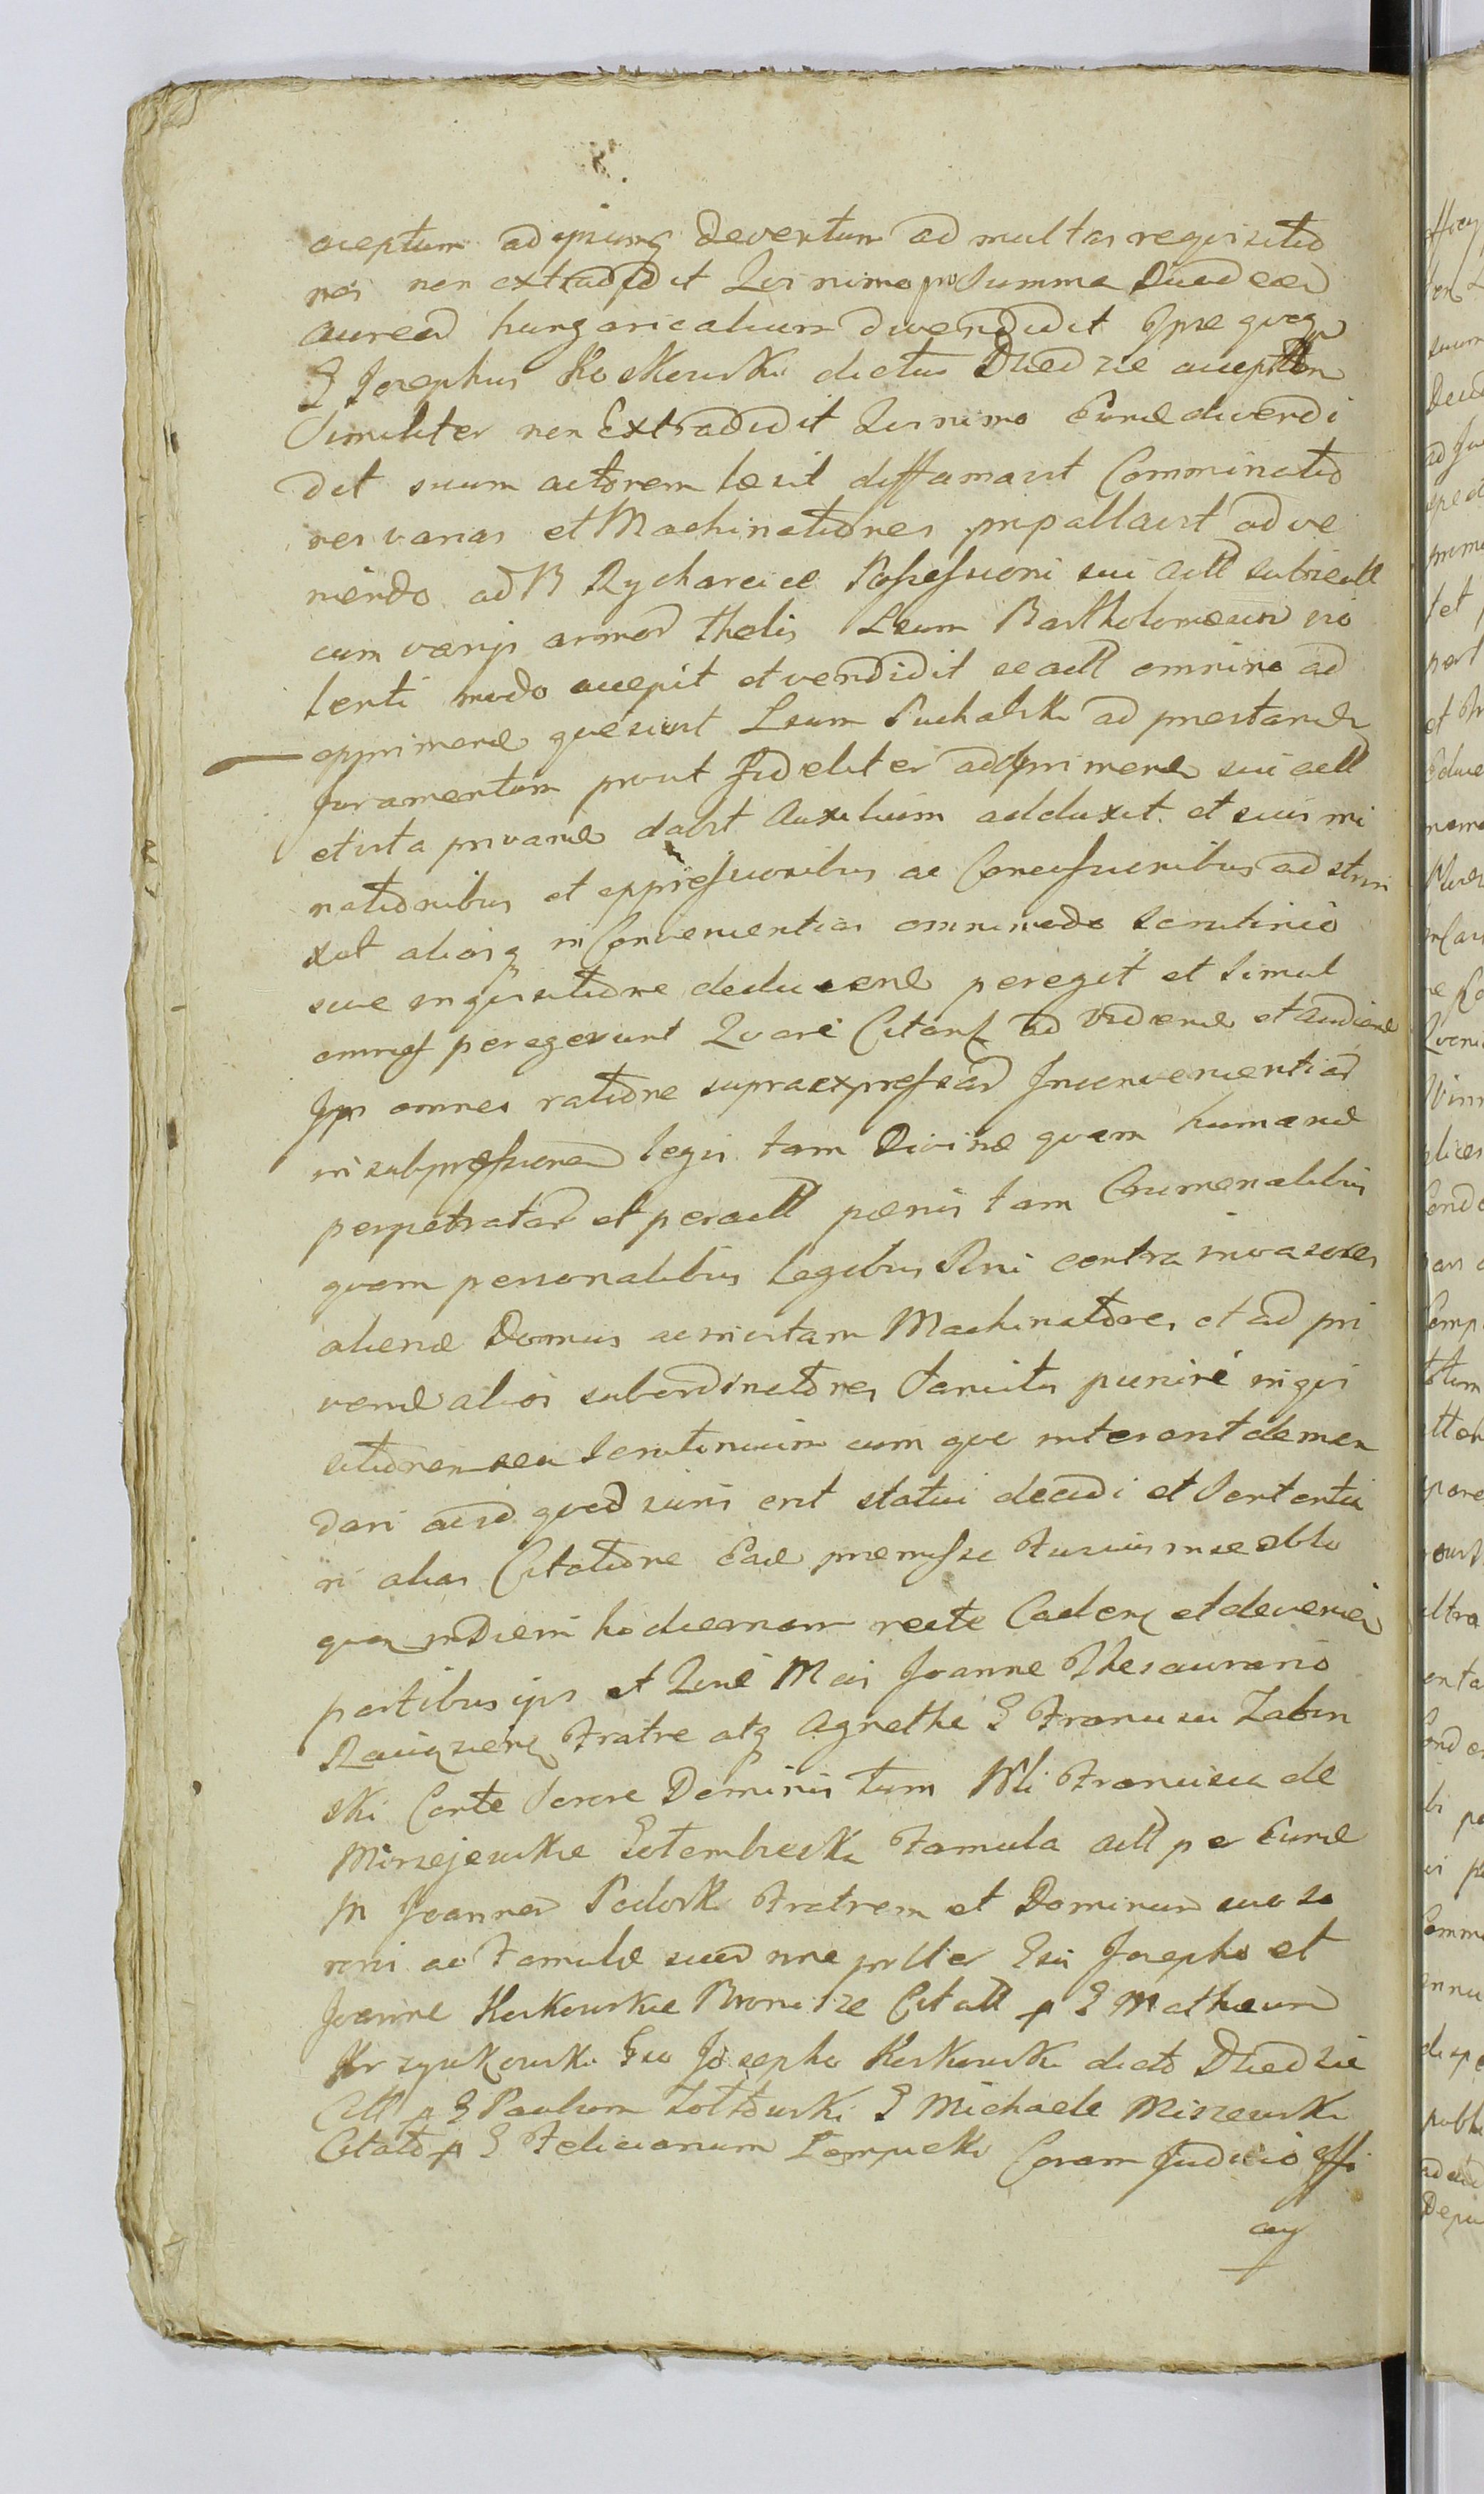 aceptum ad ipsumq devertum ad multas requisitio
nes non extradidit Qui nimo pro Summa Duodecem
aureor hungaricalium divendidit Ipse quoq
G Josephus Koskowski dictus Dziedzic acceptum
Similiter non Extradidit Qui nimo Eund divendi
dit suum actorem læsit diffamavit Comminatio
nes varias et Machinationes propallavit adve
niendo ad B Rycharcice Possessioni sui actt subiectt
cum varijs armor thelis Lsum Bartholomæum vio
lenti modo accepit et vendidit se actt omnino ad
opprimend quæsivit Lsum Puchalski ad prestand
Juramentum prout fideliter adopprimend sui actt
et vita privand dabit Auxilium adduxit et suis mi
nationibus et oppressionibus ac Concussionibus ad strin
xit aliasq inConvenientias omnimodo Scrutinio
sive inquisitione deducend peregit et Simul
omnes peregerunt Quare Citant ad Vidend et Audiend
Ipsi omnes ratione supraexpressar Inconvenientiar
in subpressionem legis tam Divinæ quam humanæ
perpetratar et peractt pænis tam Criminalibus
quam personalibus legibus Rni contra invasores
alienæ Domus ac in vitam Machinatores et ad pri
vand alios subordinatores Sancitis puniri inqui
sitionem seu Scrutinium cum quo intererit deman
dari aliud quod iuris erit statui decidi et Sententia
ri alias Citatione Ead premissa Fusius in se obloquen in Diem hodiernam recte Caden et devenien
partibus ipsis et Gene Mai Joanne Thesaurario
Racionzen Fratre atq Agnethe G Francisci Zabin
ski Conte Sorore Dominis tum Nli Francisca de
Mirzejewskie Gotembieska Famula actt per Eund
M Joannem Podoski Fratrem et Dominum suo so
rori ac Famulæ suæ nne pntter Gsis Josepho et
Joanne Koskowskie Bronisze Citatt p G Mathæum
Krzynkowski Gso Josepho Koskowski dicto Dziedzic
Citt p G Paulum Zołtowski G Michaele Miszewski
Citato p G Felicianum Lempicki Coram Judicio offi
cij